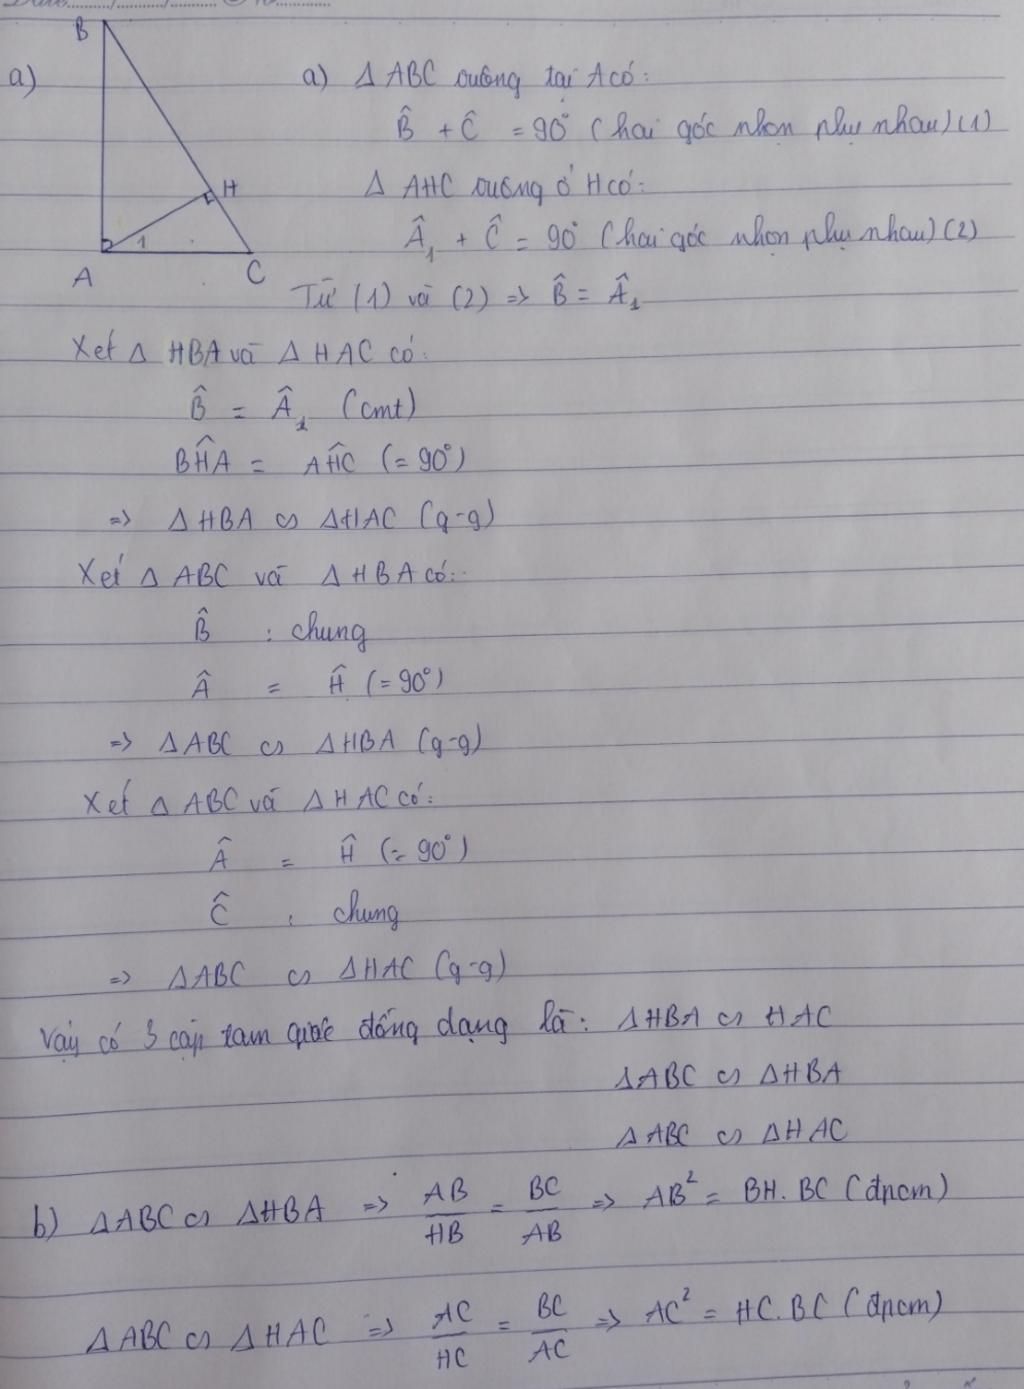 Date
B
a)
a) Δ ABC vuông tại A có:
B̂ + Ĉ = 90° (hai góc nhọn phụ nhau) (1)
H
Δ AHC vuông ở H có:
1
Â₁ + Ĉ = 90° (hai góc nhọn phụ nhau) (2)
A
C
Từ (1) và (2) => B̂ = Â₁
Xét Δ HBA và Δ HAC có:
B̂ = Â₁ (cmt)
BĤA = AĤC (= 90°)
=> Δ HBA ∽ Δ HAC (g-g)
Xét Δ ABC và Δ HBA có:
B̂ : chung
Â = Ĥ (= 90°)
=> Δ ABC ∽ Δ HBA (g-g)
Xét Δ ABC và Δ HAC có:
Â = Ĥ (= 90°)
Ĉ : chung
=> Δ ABC ∽ Δ HAC (g-g)
Vậy có 3 cặp tam giác đồng dạng là: Δ HBA ∽ HAC
Δ ABC ∽ Δ HBA
Δ ABC ∽ Δ HAC
b) Δ ABC ∽ Δ HBA => AB/HB = BC/AB => AB² = BH. BC (đpcm)
Δ ABC ∽ Δ HAC => AC/HC = BC/AC => AC² = HC. BC (đpcm)